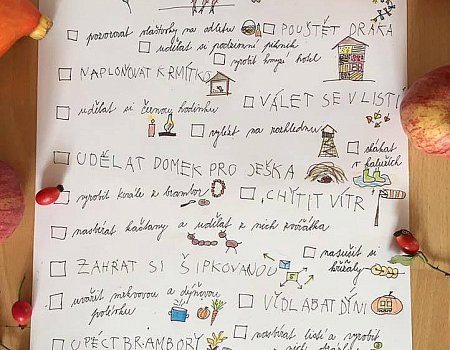 pozorovat vlaštovky na odletu
POUŠTĚT DRAKA
udělat si podzimní piknik
vyrobit hmyzí hotel
NAPLŇOVAT KRMÍTKO
udělat si černou hodinku
VÁLET SE V LISTÍ
vylézt na rozhlednu
skákat
v kalužích
UDĚLAT DOMEK PRO JEŠKA
vyrobit korále z brambor
CHYTIT VÍTR
nasbírat kaštany a udělat z nich zvířátka
nasušit si
křížaly
ZAHRÁT SI ŠIPKOVANOU
uvařit mrkvovou a dýňovou
polévku
VIDLABAT DÍNI
UPÉCT BRAMBORY
nasbírat listí a vyrobit